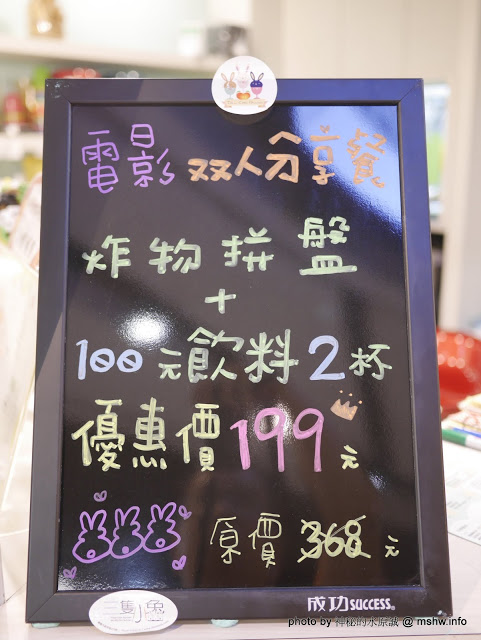 電影双人分享餐
炸物拼盤
+
100元飲料2杯
優惠價199元
原價368元
三隻小兔
成功SUCCESS®
photo by 神秘的水原誠 @ mshw.info